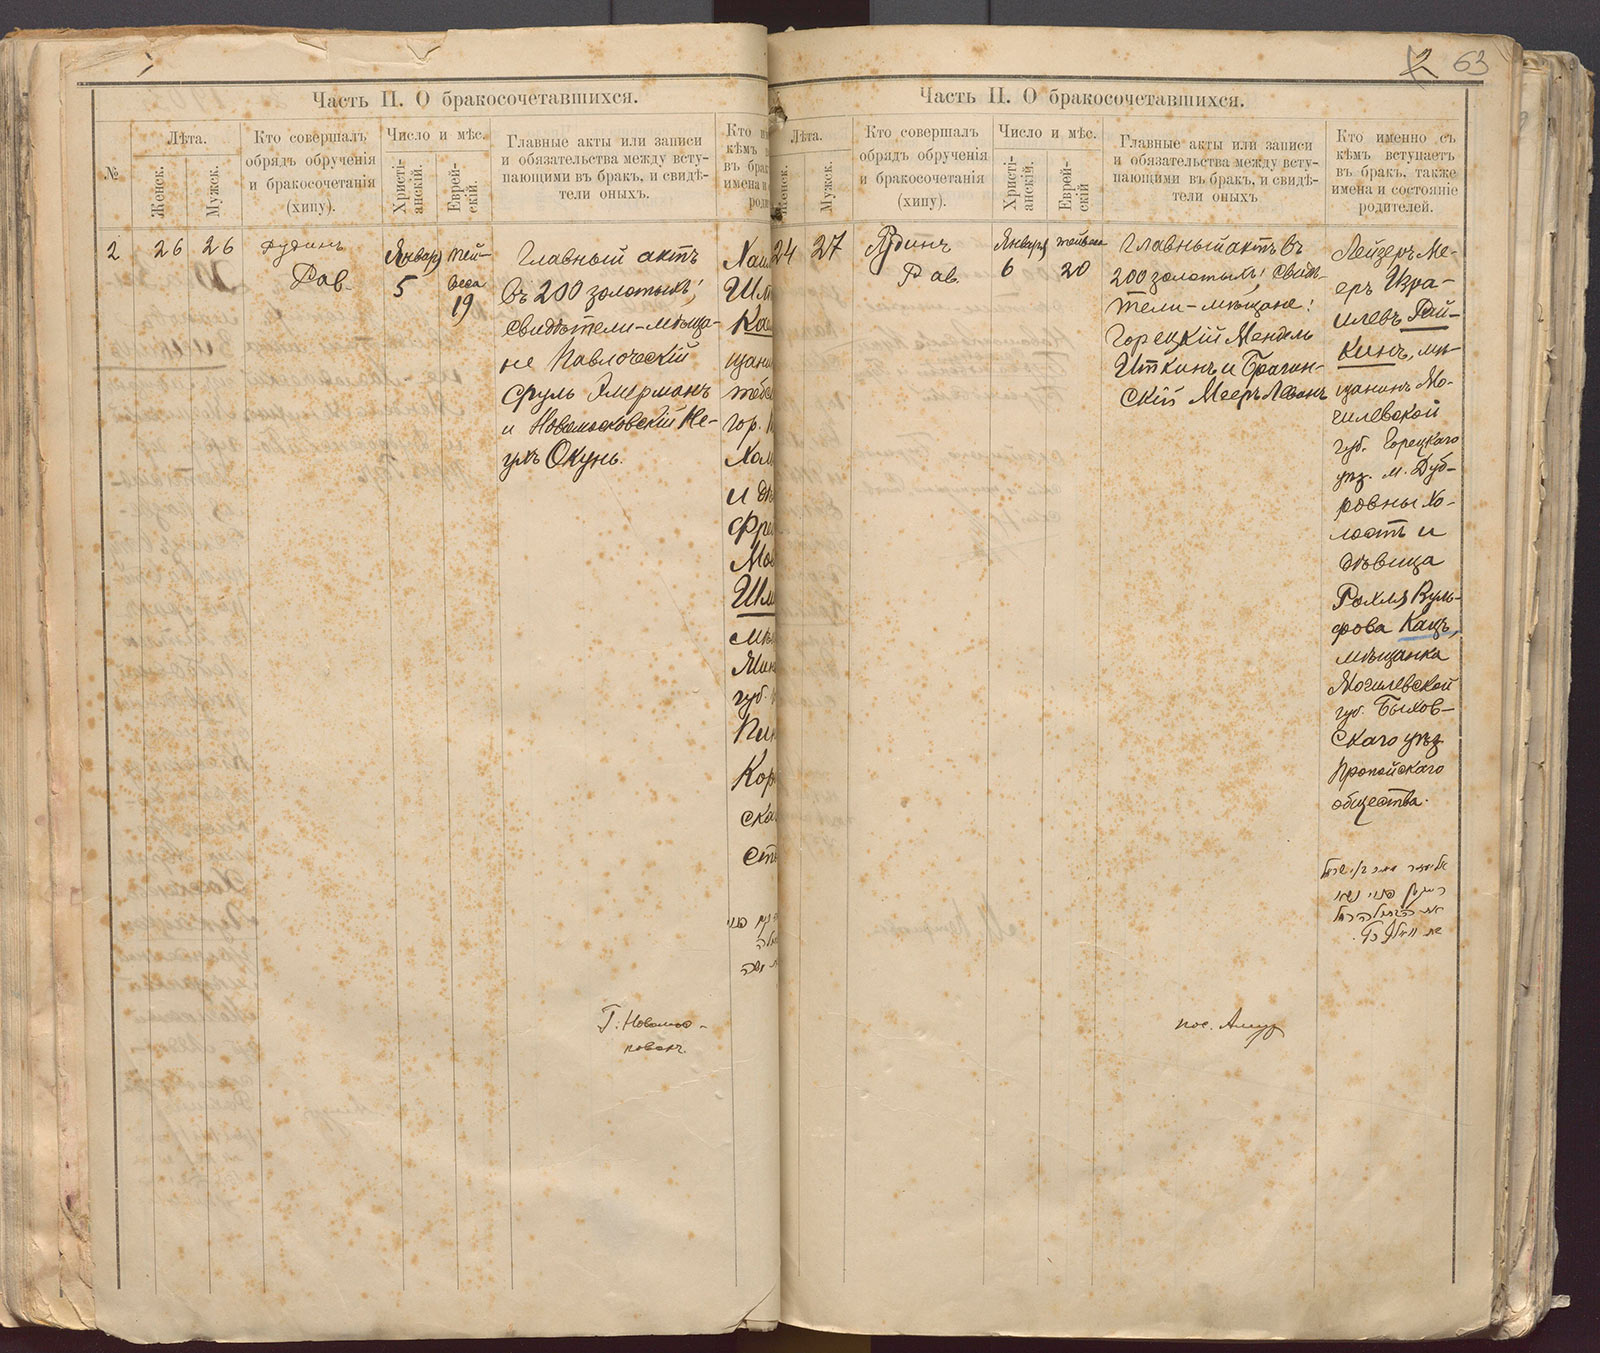 2 63
Часть II. О бракосочетавшихся.
№
Лѣта.
Женск.
Мужск.
Кто совершалъ
обрядъ обрученія
и бракосочетанія
(хипу).
Число и мѣс.
Христі-
анскій.
Еврей-
скій.
Главные акты или записи
и обязательства между всту-
пающими въ бракъ, и свидѣ-
тели оныхъ.
Кто и
кѣмъ
въ брак
имена и
роди
2
26
26
Рудинъ
Рав.
Январ
5
тей-
веса
19
Главный актъ
въ 200 золотыхъ!
свидѣтели-мѣща-
не Паволочскій
Сруль
и Новомосковскій Не-
ухъ Окунь.
Хаи
Шл
Ка
щани
гор.
Хол
и дѣ
Фре
Мов
Шл
мѣ
Мин
губ.
Пин
Кор
ска
ств
Г. Новомос-
ковскъ.
Часть II. О бракосочетавшихся.
Лѣта.
Женск.
Мужск.
Кто совершалъ
обрядъ обрученія
и бракосочетанія
(хипу).
Число и мѣс.
Христі-
анскій.
Еврей-
скій
Главные акты или записи
и обязательства между всту-
пающими въ бракъ, и свидѣ-
тели оныхъ
Кто именно съ
кѣмъ вступаетъ
въ бракъ, также
имена и состояніе
родителей.
24
27
Рудинъ
Рав.
Январ
6
тейвеса
20
Главный актъ в
200 золотыхъ! Свидѣ-
тели-мѣщане!
Горецкій Мендель
Иткинъ и Брагин-
скій Мееръ Леванъ
Лейзеръ Ме-
еръ Изра-
илевъ Рай-
кинъ, мѣ-
щанинъ Мо-
гилевской
губ. Горецкаго
уѣз. м. Дуб-
ровны хо-
лостъ и
дѣвица
Рохля Вуль-
фова Кацъ,
мѣщанка
Могилевской
губ. Быхов-
скаго уѣз
Пропойскаго
общества.
пос. Амур